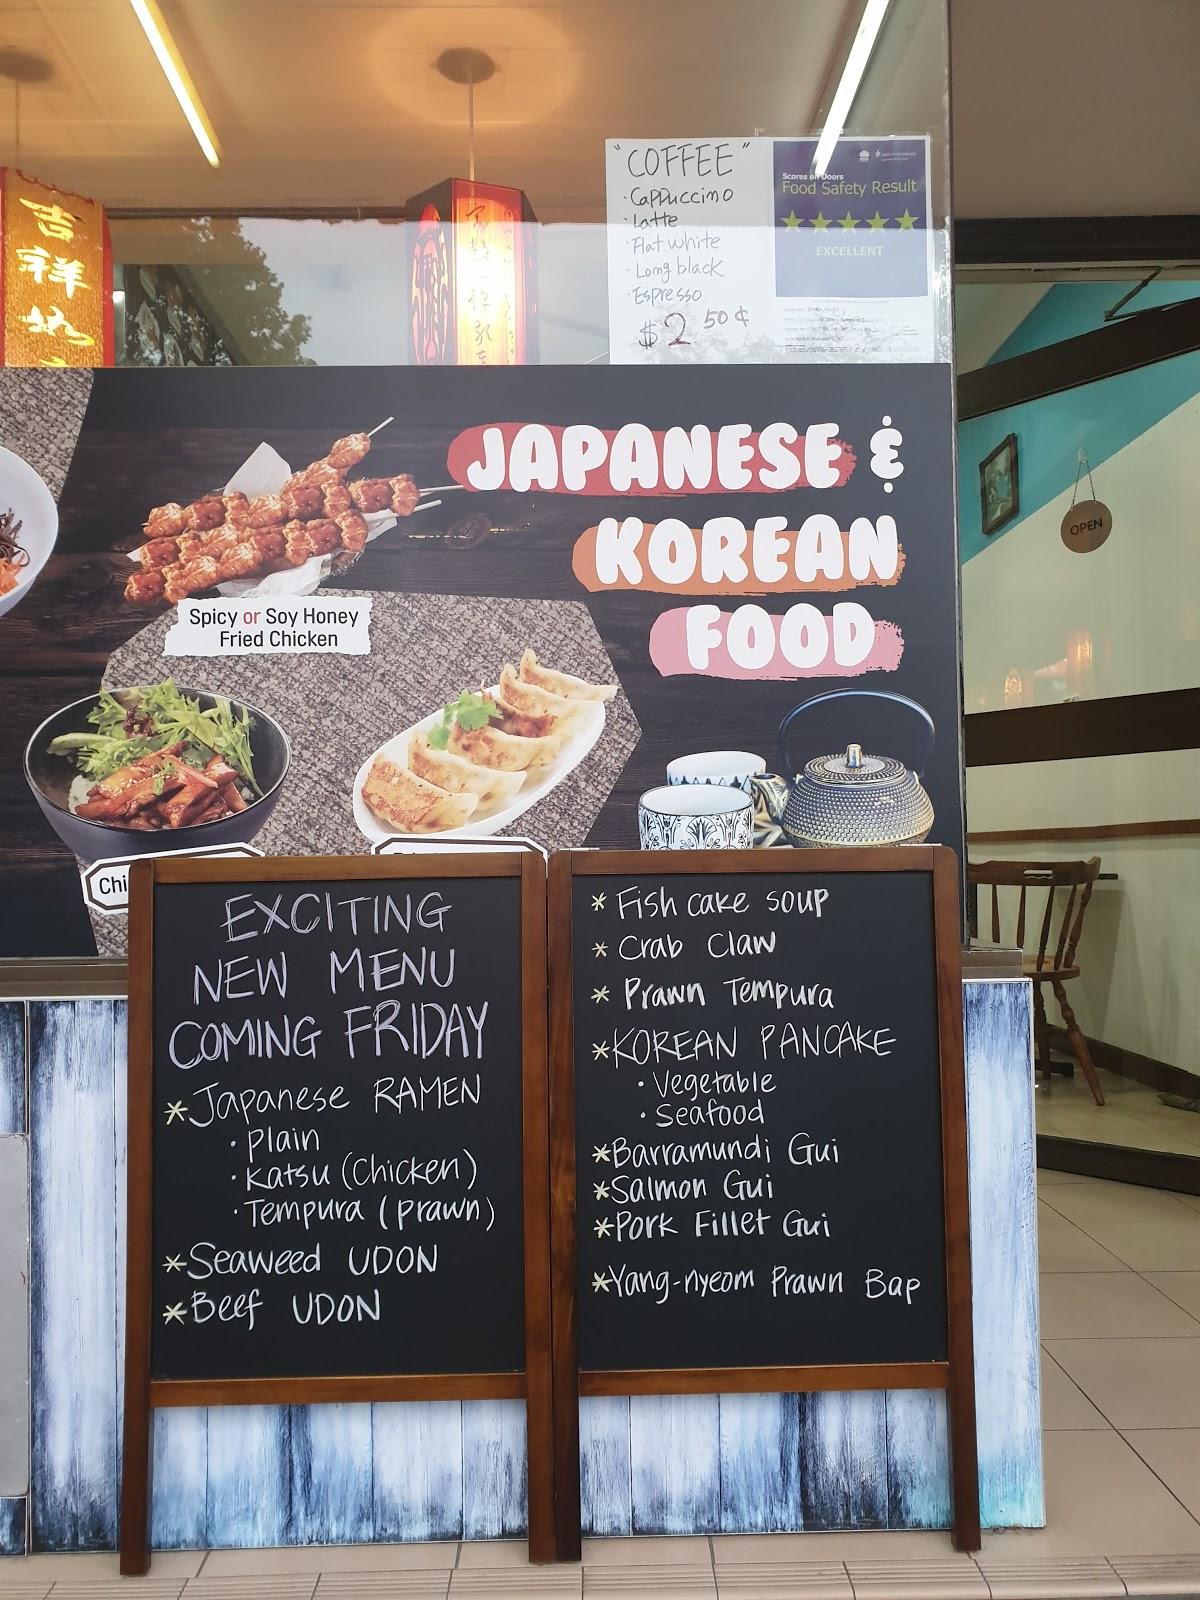 "COFFEE"
· Cappuccimo
· Latte
· Flat white
· Long black
· Espresso
$2 50¢
Scores on Doors
Food Safety Result
EXCELLENT
吉
祥
JAPANESE &
KOREAN
FOOD
Spicy or Soy Honey
Fried Chicken
Chi
EXCITING
NEW MENU
COMING FRIDAY
* Japanese RAMEN
· plain
· Katsu (Chicken)
· Tempura (prawn)
* Seaweed UDON
* Beef UDON
* Fish cake soup
* Crab Claw
* Prawn Tempura
* KOREAN PANCAKE
· Vegetable
· Seafood
* Barramundi Gui
* Salmon Gui
* Pork Fillet Gui
* Yang-nyeom Prawn Bap
OPEN